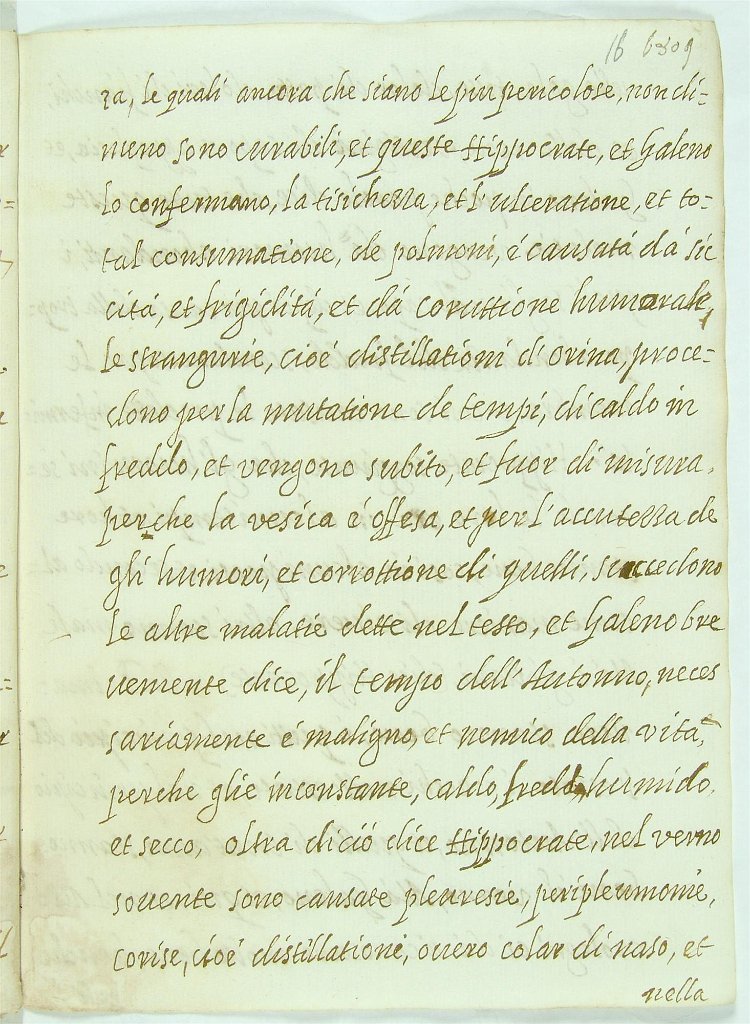 16
za, le quali ancora che siano le piu pericolose, non di=
meno sono curabili, et queste Hippocrate, et Galeno
lo confermano, la tisichezza, et l'ulceratione, et to=
tal consumatione, de polmoni, é causatá dá sic
citá, et frigiditá, et dá coruttione humorale,
le strangurie, cioé distillationi d'orina, proce=
dono per la mutatione de tempi, di caldo in
freddo, et vengono subito, et fuor di misura,
perche la vesica é offesa, et per l'accutezza de
gli humori, et corrottione di quelli, succedono
le altre malatie dette nel testo, et Galeno bre
uemente dice, il tempo dell'Autonno, neces
sariamente é maligno, et nemico della vitá,
perche glie inconstante, caldo, freddo, humido,
et secco, oltra dició dice Hippocrate, nel verno
souente sono causate pleuresie, peripleumonie,
corise, cioé distillationi, ouero colar di naso, et
nella